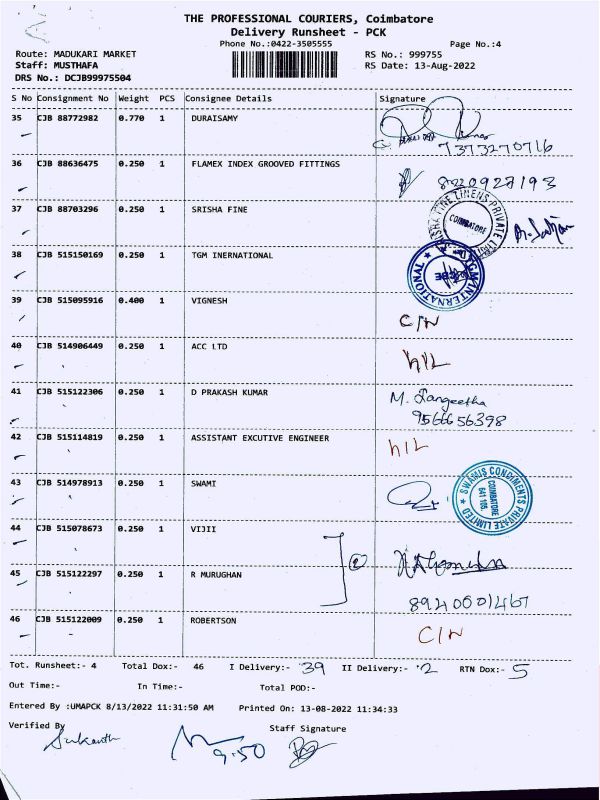 THE PROFESSIONAL COURIERS, Coimbatore
Delivery Runsheet - PCK
Phone No.:0422-3505555 Page No.:4
Route: MADUKARI MARKET RS No.: 999755
Staff: MUSTHAFA RS Date: 13-Aug-2022
DRS No.: DCJB99975504
S No Consignment No Weight PCS Consignee Details Signature
35 CJB 88772982 0.770 1 DURAISAMY
7373270716
36 CJB 88636475 0.250 1 FLAMEX INDEX GROOVED FITTINGS
8220927193
37 CJB 88703296 0.250 1 SRISHA FINE
COIMBATORE
38 CJB 515150169 0.250 1 TGM INERNATIONAL
TGM INTERNATIONAL CBE
39 CJB 515095916 0.400 1 VIGNESH
C/N
40 CJB 514906449 0.250 1 ACC LTD
h/L
41 CJB 515122306 0.250 1 D PRAKASH KUMAR M. Sangeetha
9566656398
42 CJB 515114819 0.250 1 ASSISTANT EXCUTIVE ENGINEER
h/L
43 CJB 514978913 0.250 1 SWAMI
SWAMIS CONDIMENTS PRIVATE LIMITED
COIMBATORE
641 105
44 CJB 515078673 0.250 1 VIJII
45 CJB 515122297 0.250 1 R MURUGHAN
8940001467
46 CJB 515122009 0.250 1 ROBERTSON
C/N
Tot. Runsheet:- 4 Total Dox:- 46 I Delivery:- 39 II Delivery:- 2 RTN Dox:- 5
Out Time:- In Time:- Total POD:-
Entered By :UMAPCK 8/13/2022 11:31:50 AM Printed On: 13-08-2022 11:34:33
Verified By Staff Signature
Srikanth 9.50